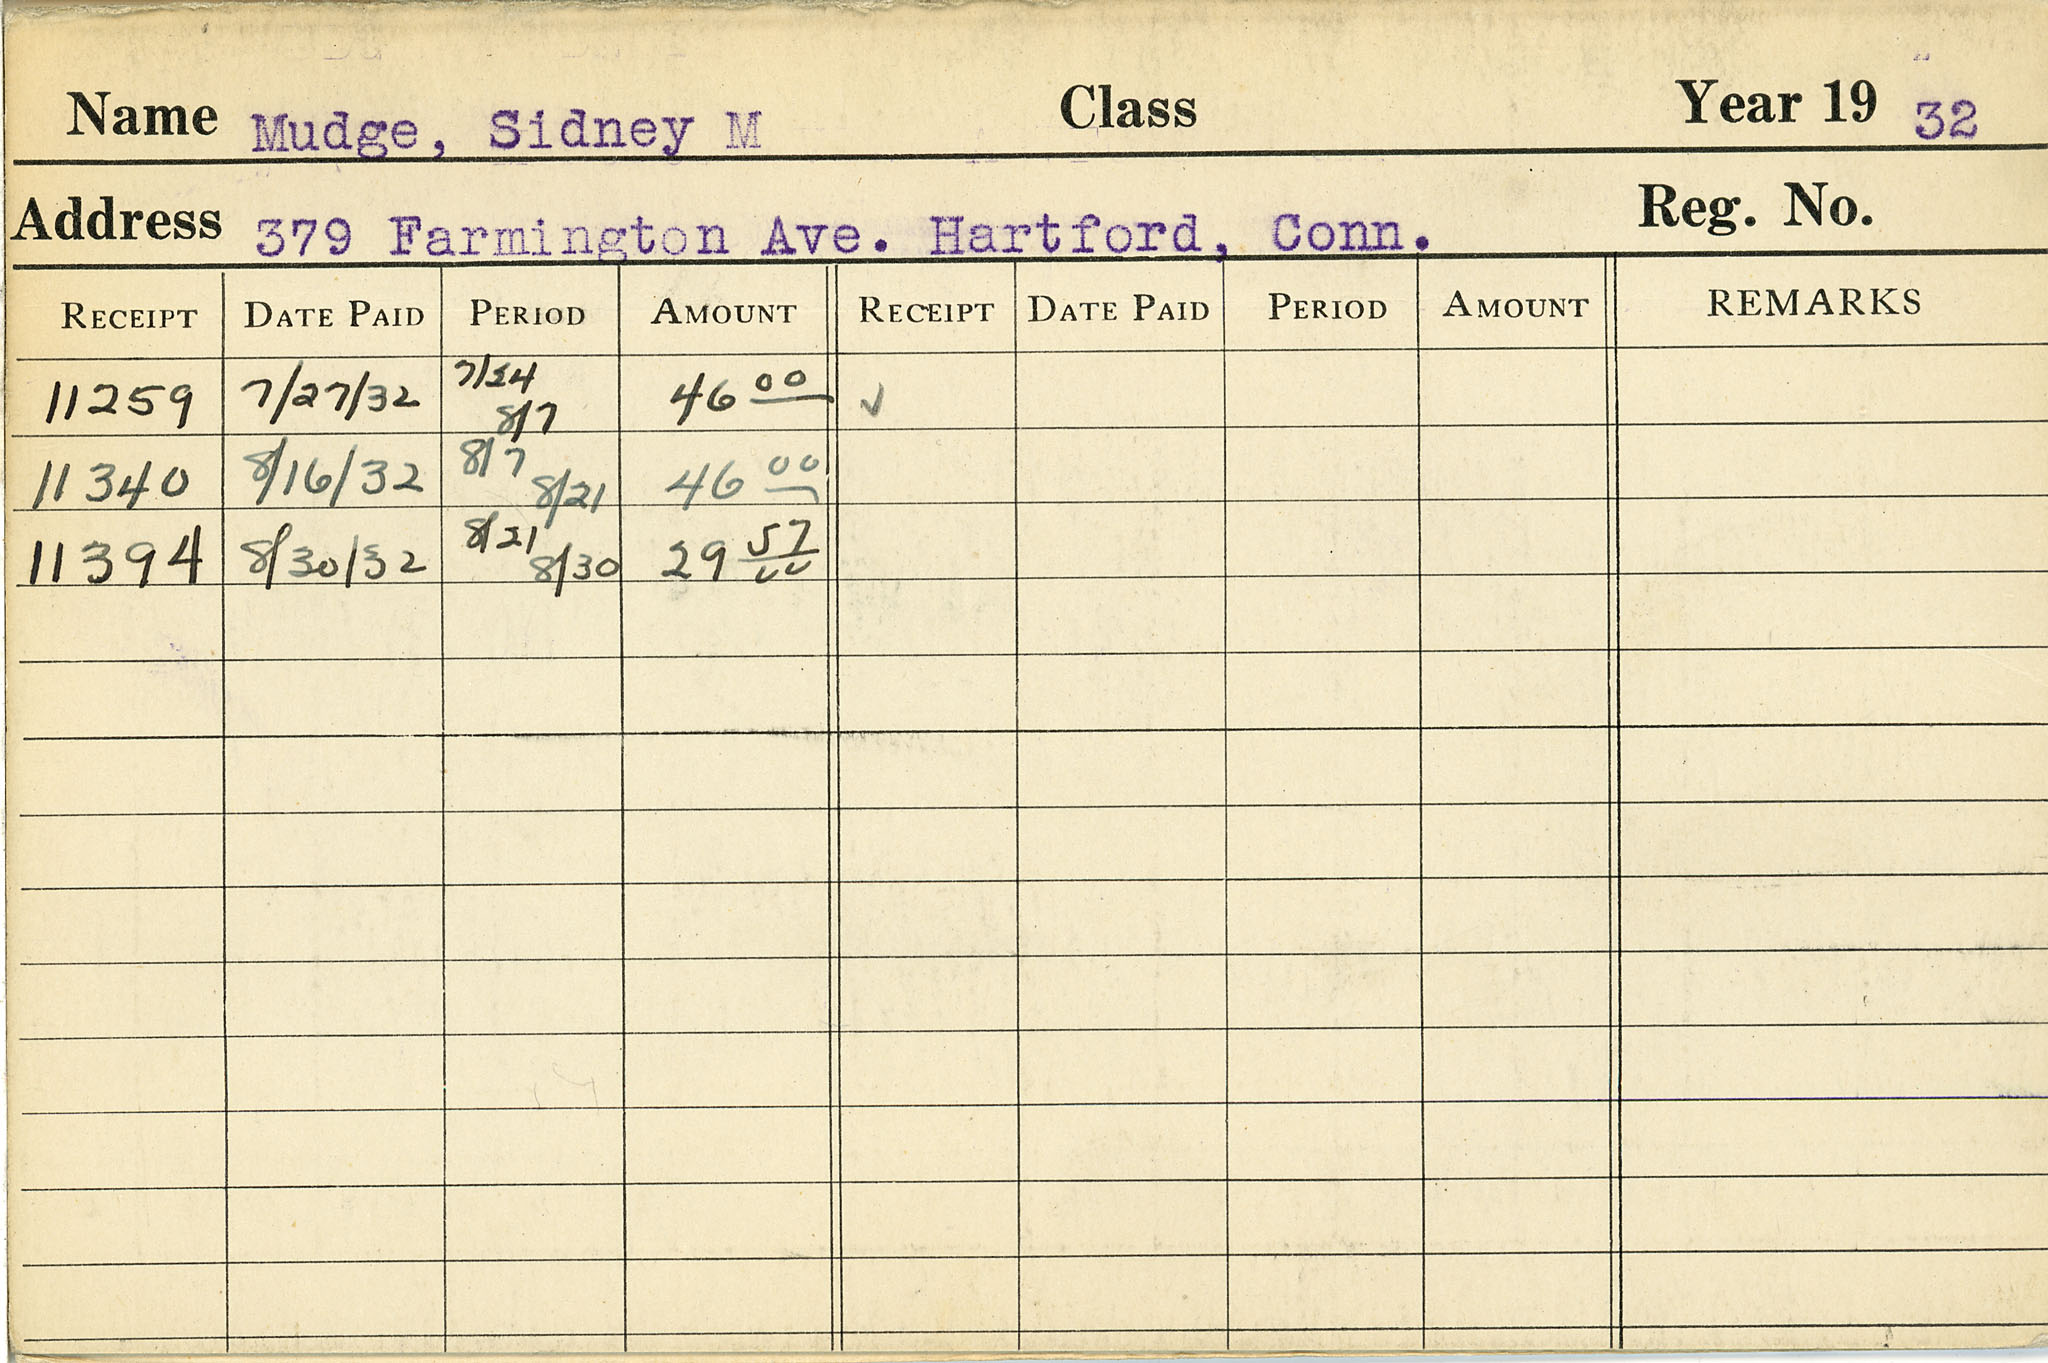 Name Mudge, Sidney M Class Year 19 32
Address 379 Farmington Ave. Hartford, Conn. Reg. No.
RECEIPT DATE PAID PERIOD AMOUNT RECEIPT DATE PAID PERIOD AMOUNT REMARKS
11259 7/27/32 7/24 8/7 46 00 ✓
11340 8/16/32 8/7 8/21 46 00
11394 8/30/32 8/21 8/30 29 57